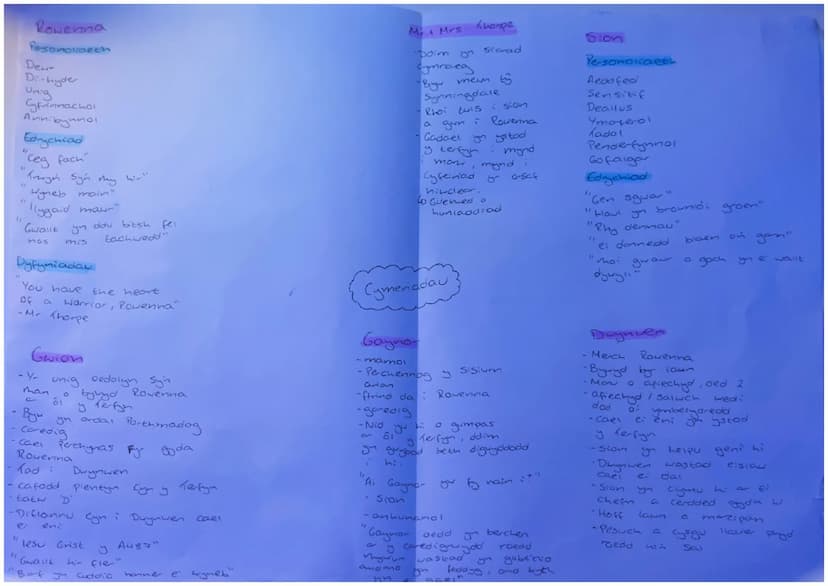 Rowenna
Personoliaeth
Dewr
Di-hyder
Unig
Cyfrinachol
Annibynnol
Edrychiad
"Ceg fach"
"Trwyn syn rhy hir"
"Wyneb main"
"Llygaid mawr"
"Gwallt yn ddu bitsh fel
nos mis tachwedd"
Dyfyniadau
"You have the heart
of a warrior, Rowenna"
- Mr Thorpe
Gwion
- Yr unig oedolyn syn
rhan o bywyd Rowenna
ar ôl y terfyn
- Byw yn ardal Porthmadog
- Caredig
- Cael perthynas gyda
Rowenna
- Tad i Dwynwen
- cafodd plentyn cyn y Terfyn
- tatw 'D'
- Diflannu cyn i Dwynwen cael
ei eni
"Iesu Grist y A487"
"Gwallt hir fler"
"Barf yn cuddio hanner ei wyneb"
Mr + Mrs Thorpe
- Ddim yn siarad
cymraeg
- Byw mewn tŷ
Sunningdale
- Rhoi Luis i Sion
a gwn i Rowenna
- Gadael yn ystod
y terfyn i mynd
i marw, mynd i
cyfeiriad yr
niwclear.
↳ Gweithred o
hunladdiad
Cymeriadau
Gaynor
- mamol
- Perchennog y Siswrn
arian
- ffrind da i Rowenna
- garedig
- Nid yw hi o gwmpas
ar ôl y terfyn, ddim
yn gwybod beth digwyddodd
i hi.
"Ai Gaynor yw fy nain i?"
- Sion
- anhunanol
"Gaynor oedd yn berchen
ar y caredigrwydd roedd
wastad yn
Sion
Personoliaeth
Aeddfed
Sensitif
Deallus
Ymarferol
Tadol
Penderfynnol
Gofalgar
Edrychiad
"Gen sgwar"
"Haul yn brownio'i groen"
"Rhy denau"
"ei dannedd blaen o'n gam"
"rhoi gwawr o goch yn ei wallt
dywyll"
Dwynwen
- Merch Rowenna
- Bywyd byr iawn
- Marw o afiechyd, oed 2
- afiechyd / salwch wedi
dod o'r ymbelydredd
- Cael ei eni yn ystod
y terfyn
- Sion yn helpu geni hi
- Dwynwen wastad eisiau
cael ei dal
- Sion yn clymu hi ar ei
chefn a cerdded gyda hi
- Hoff iawn o marzipan
- Peswch a cysgu llawer pryd
roedd hi'n sal